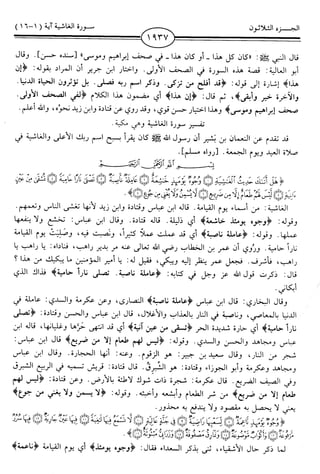 الجـــزء الثـــلاثون
سورة الغاشية آية (١-١٦)
١٩٣٧
قال النبي ﷺ: «كان كل هذا - أو كان هذا - في صحف إبراهيم وموسى» [سنده حسن]. وقال
أبو العالية: قصة هذه السورة في الصحف الأولى. واختار ابن جرير أن المراد بقوله: ﴿إن
هذا﴾ إشارة إلى قوله: ﴿قد أفلح من تزكى. وذكر اسم ربه فصلى. بل تؤثرون الحياة الدنيا.
والآخرة خير وأبقى﴾، ثم قال: ﴿إن هذا﴾ أي مضمون هذا الكلام ﴿لفي الصحف الأولى.
صحف إبراهيم وموسى﴾ وهذا اختيار حسن قوي، وقد روي عن قتادة وابن زيد نحوه، والله أعلم.
تفسير سورة الغاشية وهي مكية.
قد تقدم عن النعمان بن بشير أن رسول الله ﷺ كان يقرأ بسبح اسم ربك الأعلى والغاشية في
صلاة العيد ويوم الجمعة. [رواه مسلم].
الغاشية: من أسماء يوم القيامة. قاله ابن عباس وقتادة وابن زيد لأنها تغشى الناس وتعمهم.
وقوله: ﴿وجوه يومئذ خاشعة﴾ أي ذليلة. قاله قتادة. وقال ابن عباس: تخشع ولا ينفعها
عملها. وقوله: ﴿عاملة ناصبة﴾ أي قد عملت عملاً كثيراً، ونصبت فيه، وصليت يوم القيامة
ناراً حامية. وروي أن عمر بن الخطاب رضي الله تعالى عنه مر بدير راهب، فناداه: يا راهب يا
راهب، فأشرف. فجعل عمر ينظر إليه ويبكي، فقيل له: يا أمير المؤمنين ما يبكيك من هذا ؟
قال: ذكرت قول الله عز وجل في كتابه: ﴿عاملة ناصبة. تصلى ناراً حامية﴾ فذاك الذي
أبكاني.
وقال البخاري: قال ابن عباس ﴿عاملة ناصبة﴾ النصارى، وعن عكرمة والسدي: عاملة في
الدنيا بالمعاصي، وناصبة في النار بالعذاب والأغلال، قال ابن عباس والحسن وقتادة: ﴿تصلى
ناراً حامية﴾ أي حارة شديدة الحر ﴿تسقى من عين آنية﴾ أي قد انتهى حرها وغليانها، قاله ابن
عباس ومجاهد والحسن والسدي. وقوله: ﴿ليس لهم طعام إلا من ضريع﴾ قال ابن عباس:
شجر من النار، وقال سعيد بن جبير: هو الزقوم. وعنه: أنها الحجارة. وقال ابن عباس
ومجاهد وعكرمة وأبو الجوزاء وقتادة: هو الشبرق. قال قتادة: قريش تسميه في الربيع الشبرق
وفي الصيف الضريع. قال عكرمة: شجرة ذات شوك لاطئة بالأرض. وعن قتادة: ﴿ليس لهم
طعام إلا من ضريع﴾ من شر الطعام وأبشعه وأخبثه. وقوله: ﴿لا يسمن ولا يغني من جوع﴾
يعني لا يحصل به مقصود ولا يندفع به محذور.
لما ذكر حال الأشقياء، ثنى بذكر السعداء فقال: ﴿وجوه يومئذ﴾ أي يوم القيامة ﴿ناعمة﴾